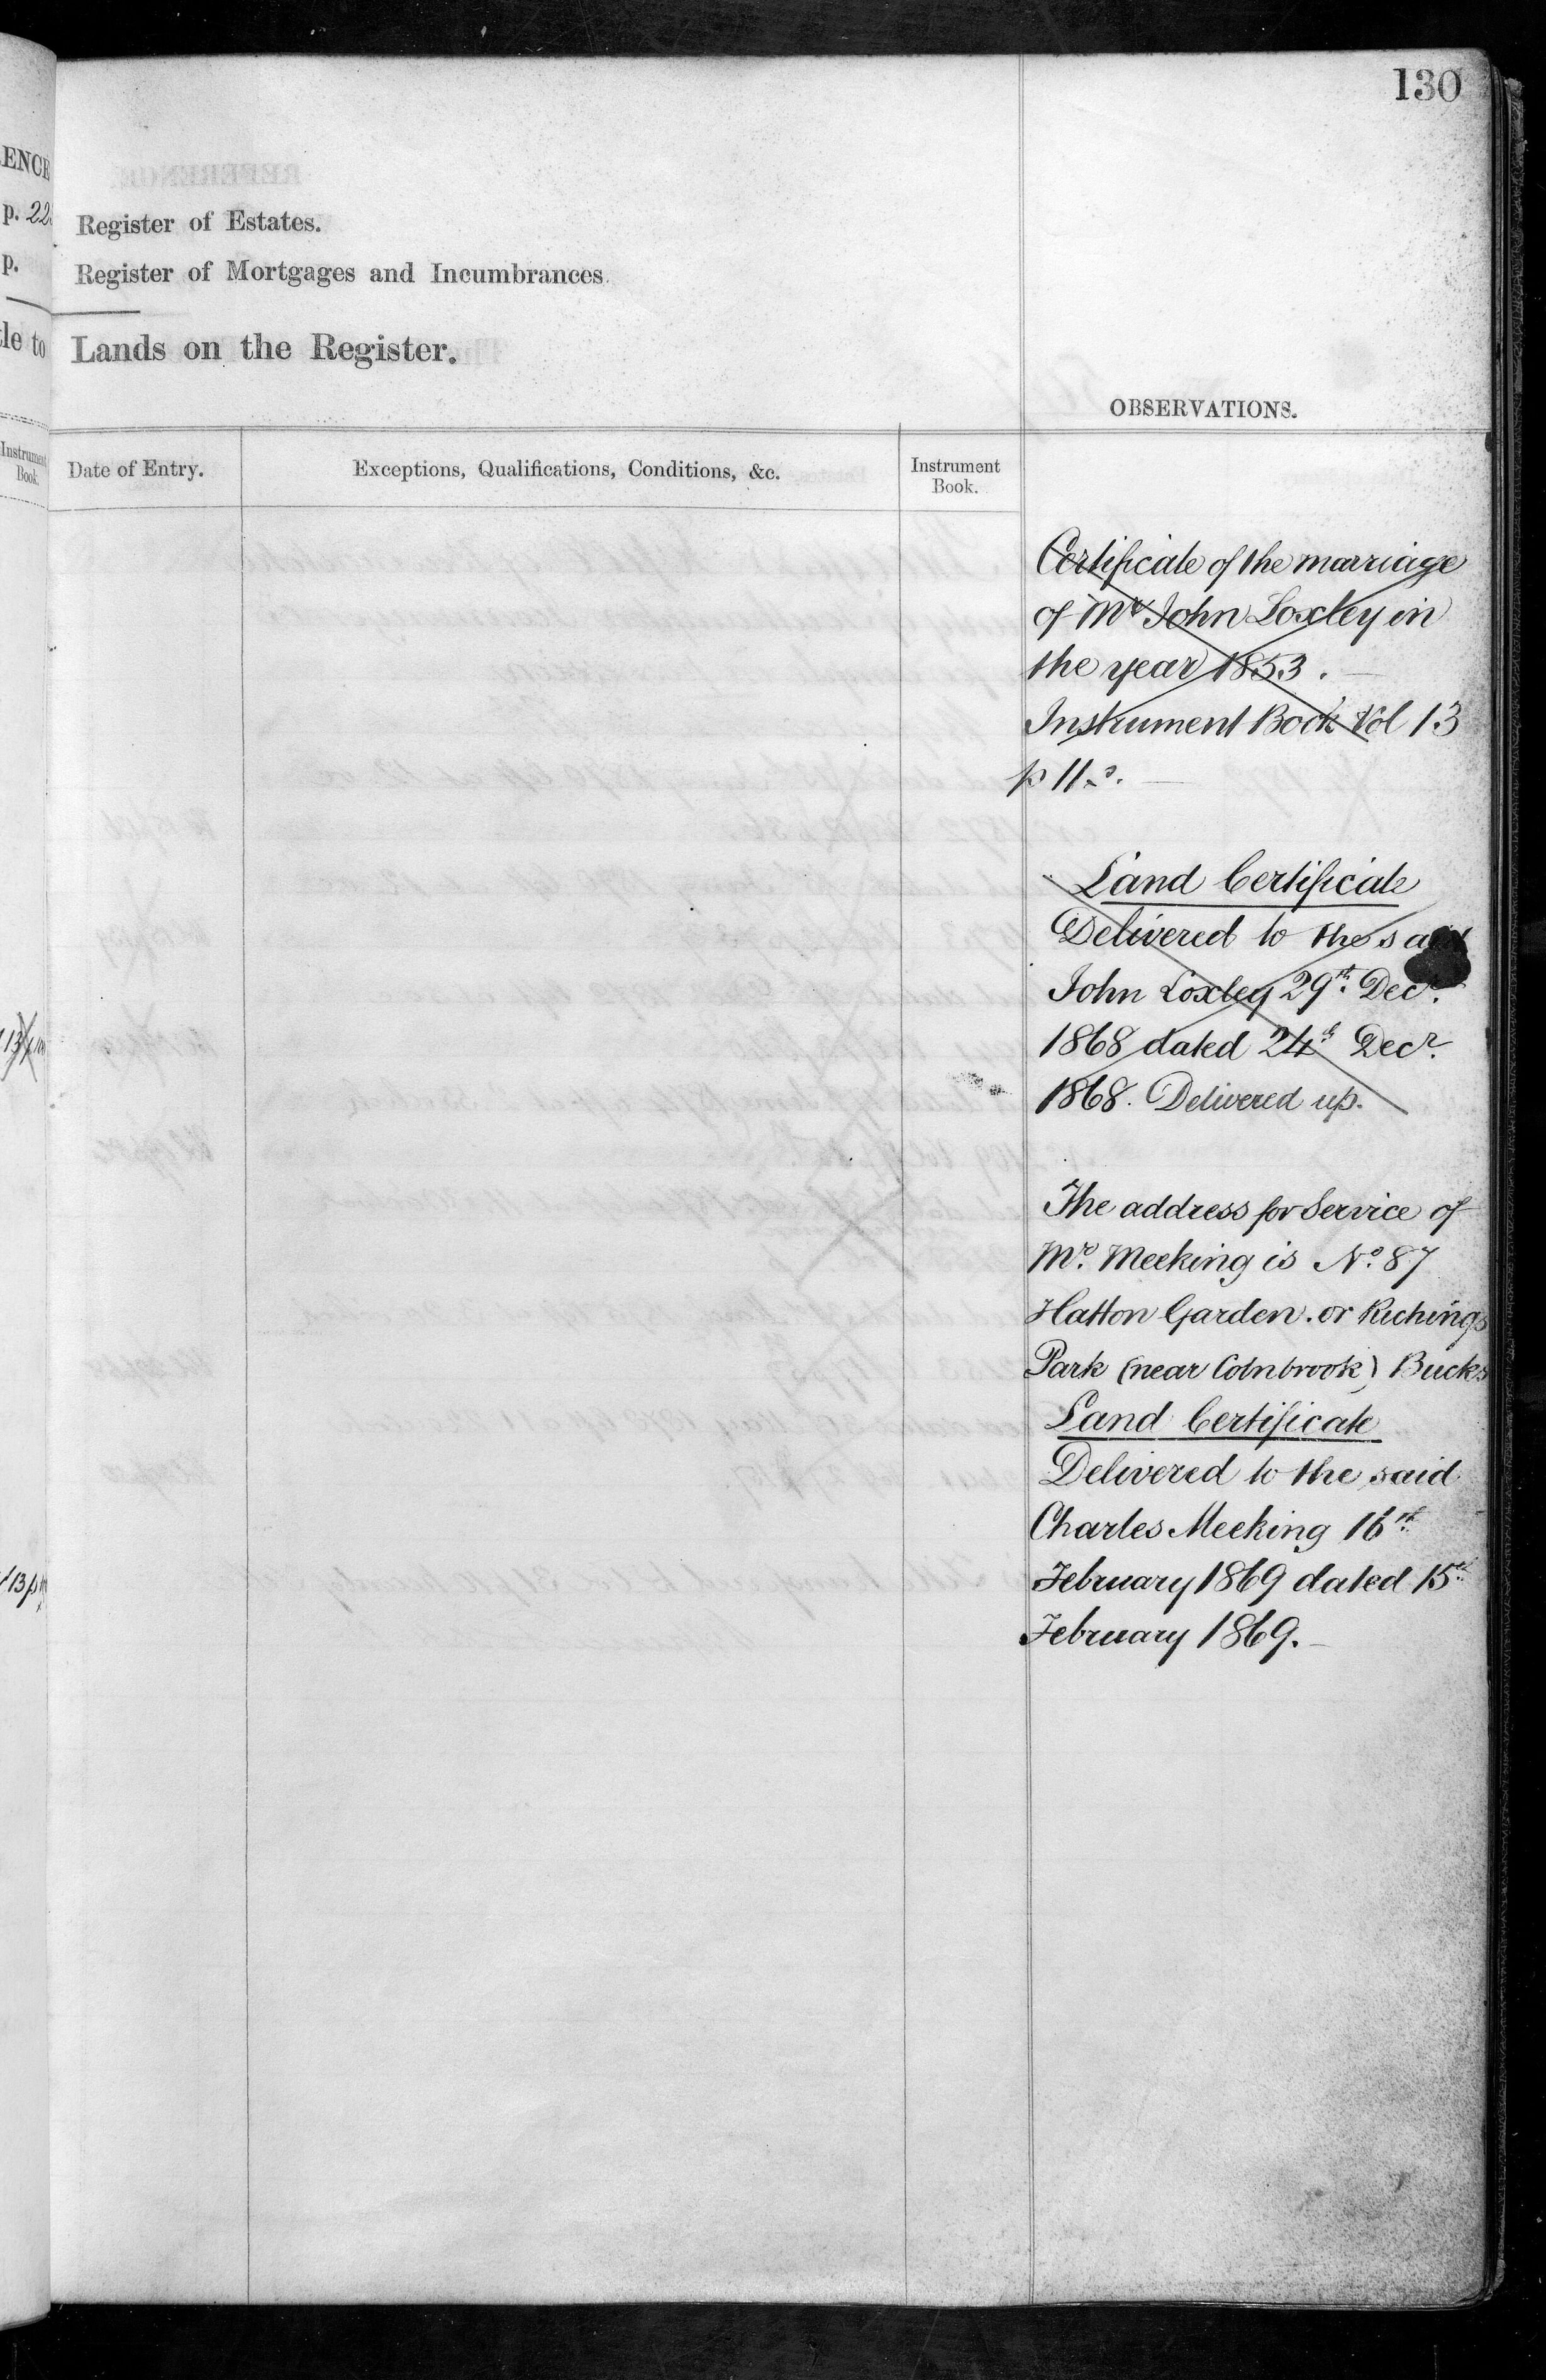 130
ENCE
p. 22
p.
Register of Estates.
Register of Mortgages and Incumbrances.
tle to
Lands on the Register.
OBSERVATIONS.
Instrument
Book.
Date of Entry.
Exceptions, Qualifications, Conditions, &c.
Instrument
Book.
Certificate of the marriage
of Mr John Loxley in
the year 1853.
Instrument Book Vol 13
p 11
Land Certificate
Delivered to the said
John Loxley 29th Decr.
1868 dated 24th Decr.
1868. Delivered up.
The address for Service of
Mr. Meeking is No. 87
Hatton Garden. or Richings
Park (near Colnbrook) Bucks
Land Certificate
Delivered to the said
Charles Meeking 16th
February 1869 dated 15th
February 1869.